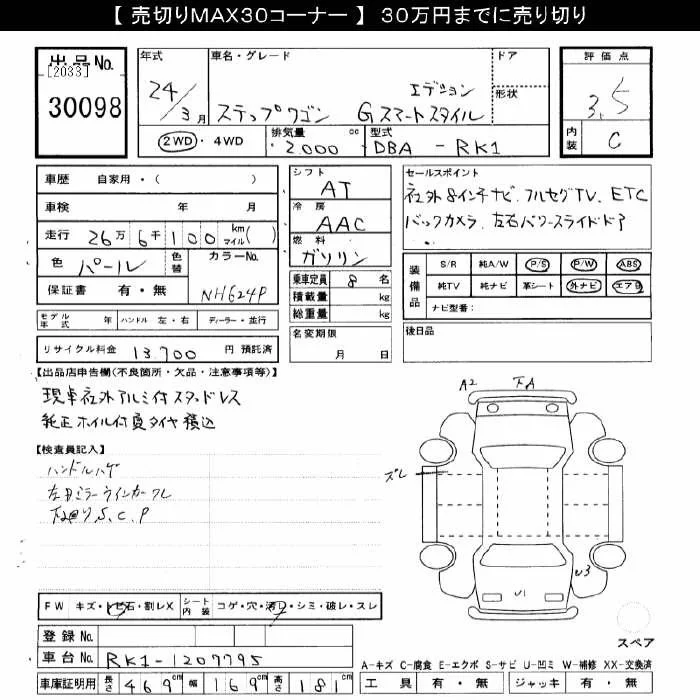 【 売切りMAX30コーナー 】 30万円までに売り切り
出品No.
[2033]
30098
年式
24/3月
車名・グレード
ステップワゴン Gスマートスタイル
エデション
ドア
形状
評価点
3.5
内装
C
2WD・4WD
排気量 cc
2000
型式
DBA - RK1
車歴 自家用・( )
車検 年 月
走行 26万6千100 km マイル( )
色 パール
色替
カラーNo.
NH624P
保証書 有・無
シフト
AT
冷房
AAC
燃料
ガソリン
乗車定員 8 名
積載量 kg
総重量 kg
セールスポイント
社外8インチナビ、フルセグTV、ETC
バックカメラ、左右パワースライドドア
装備品
S/R 純A/W P/S P/W ABS
純TV 純ナビ 革シート 外ナビ エアB
ナビ型番:
モデル年式 年 ハンドル 左・右 ディーラー・並行
名変期限
月 日
後日品
リサイクル料金 13,700 円 預託済
【出品店申告欄(不良箇所・欠品・注意事項等)】
現車社外アルミ付スタッドレス
純正ホイル付夏タイヤ積込
【検査員記入】
ハンドルハゲ
左ドミラーウインカーワレ
下廻りS.C.P
A2
下A
ズレ
U3
U1
FW キズ・トビ石・割レX
シート内装 コゲ・穴・汚レ・シミ・破レ・スレ
スペア
登録No.
車台No. RK1-1207795
A-キズ C-腐食 E-エクボ S-サビ U-凹ミ W-補修 XX-交換済
車庫証明用 長さ 469cm 幅 169cm 高さ 181cm
工具 有・無 ジャッキ 有・無